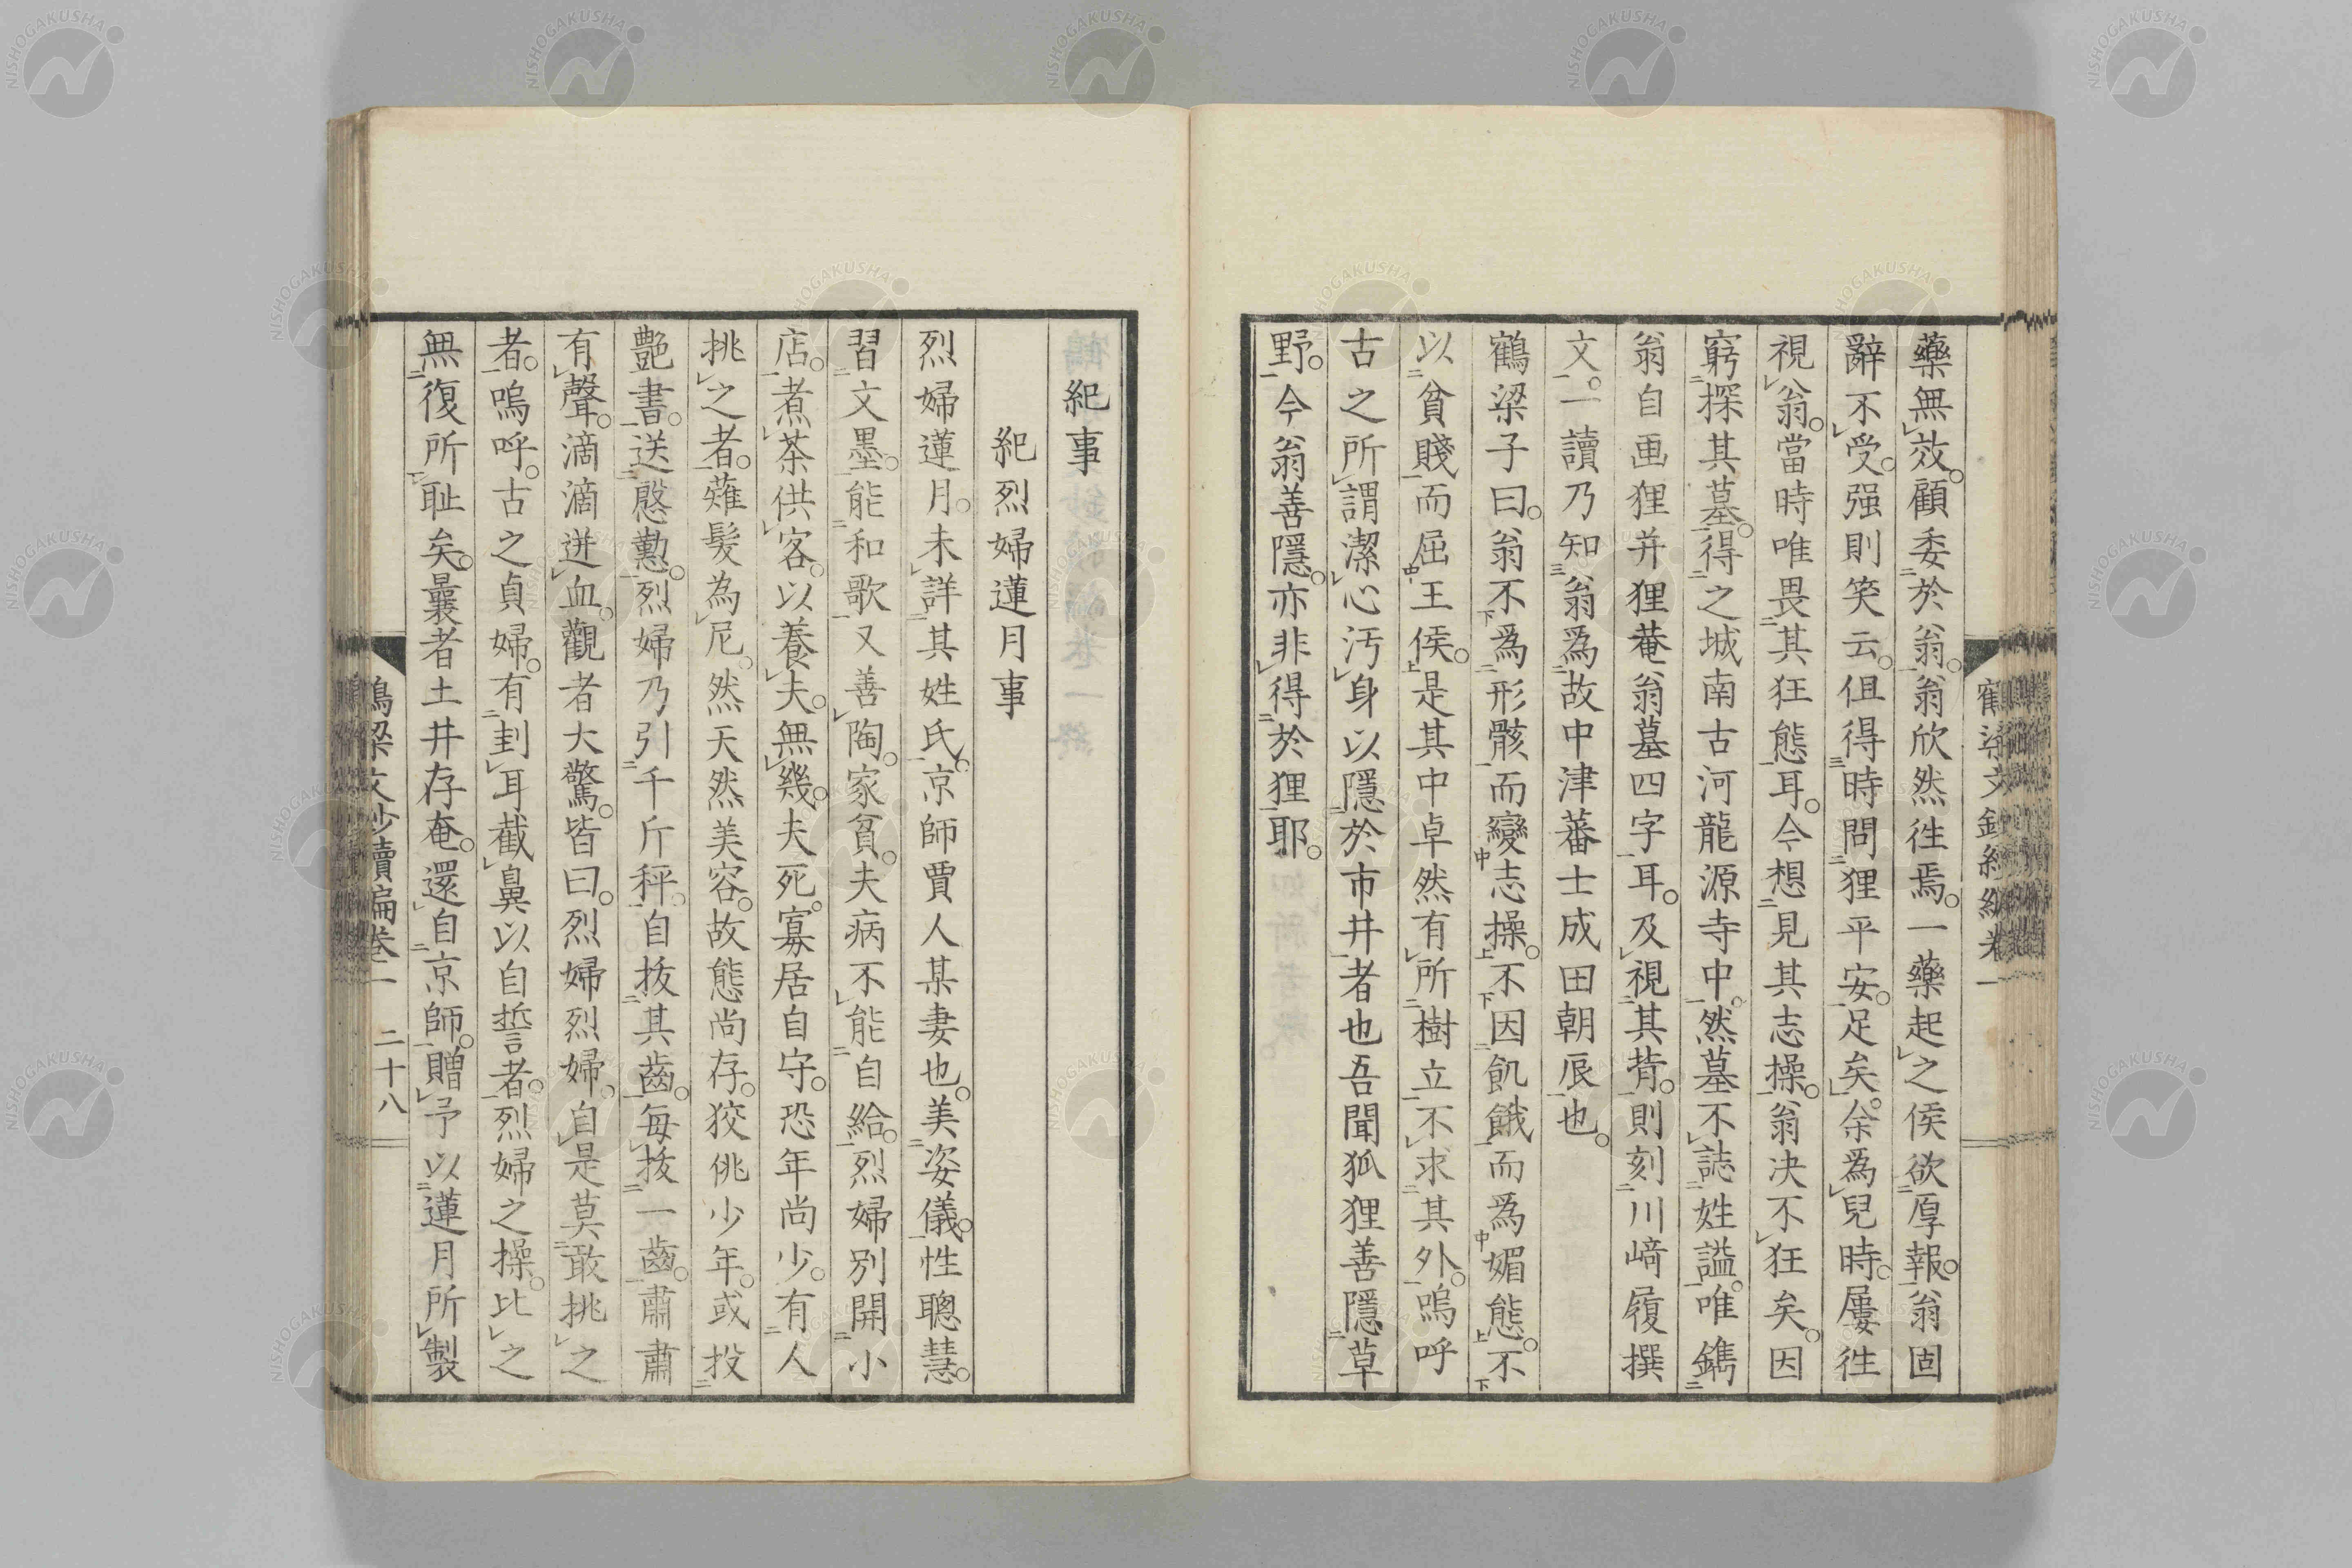 藥無效。顧委於翁。翁欣然徃焉。一藥起之侯欲厚報。翁固
辭不受。强則笑云。但得時問狸平安。足矣。余爲兒時。屢徃
視翁。當時唯畏其狂態耳。今想見其志操。翁决不狂矣。因
窮探其墓。得之城南古河龍源寺中。然墓不誌姓謚。唯鐫
翁自画狸并狸菴翁墓四字耳。及視其背。則刻川﨑履撰
文。一讀乃知翁爲故中津蕃士成田朝辰也。
鶴梁子曰。翁不爲形骸而變志操。不因飢餓而爲媚態。不
以貧賤而屈王侯。是其中卓然有所樹立不求其外。嗚呼
古之所謂潔心汚身以隱於市井者也吾聞狐狸善隱草
野。今翁善隱。亦非得於狸耶。
紀事
紀烈婦蓮月事
烈婦蓮月。未詳其姓氏。京師賈人某妻也。美姿儀。性聰慧。
習文墨。能和歌又善陶。家貧。夫病不能自給。烈婦別開小
店。煮茶供客。以養夫。無幾。夫死。寡居自守。恐年尚少。有人
挑之者。薙髮為尼。然天然美容。故態尚存。狡佻少年。或投
艷書。送慇懃。烈婦乃引千斤秤。自抜其齒。每抜一齒。肅肅
有聲。滴滴迸血。觀者大驚。皆曰。烈婦烈婦。自是莫敢挑之
者。嗚呼。古之貞婦。有刲耳截鼻以自誓者。烈婦之操。比之
無復所耻矣。曩者土井存奄。還自京師。贈予以蓮月所製
二十八